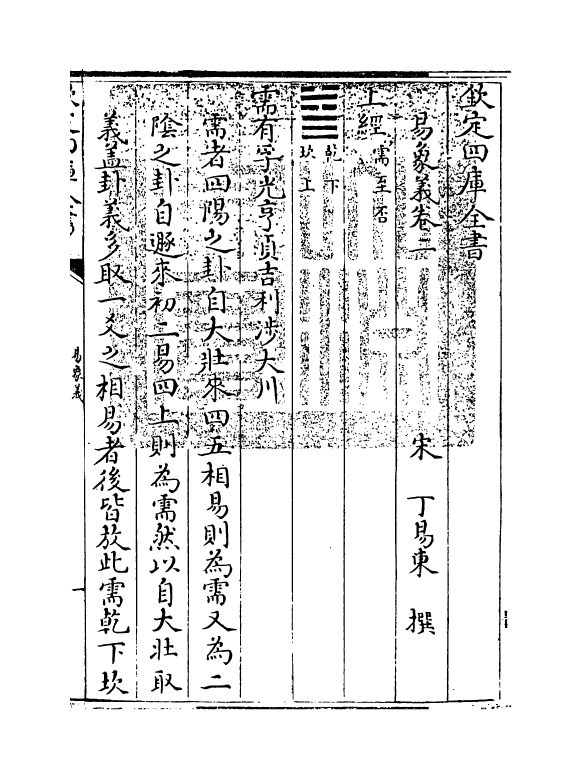 欽定四庫全書
易象義卷二　　　　宋　丁易東　撰
上經需至否
乾下
坎上
需有孚光亨貞吉利涉大川
需者四陽之卦自大壯來四五相易則為需又為二
陰之卦自遯來初二易四上則為需然以自大壯取
義蓋卦義多取一爻之相易者後皆放此需乾下坎
易象義
一